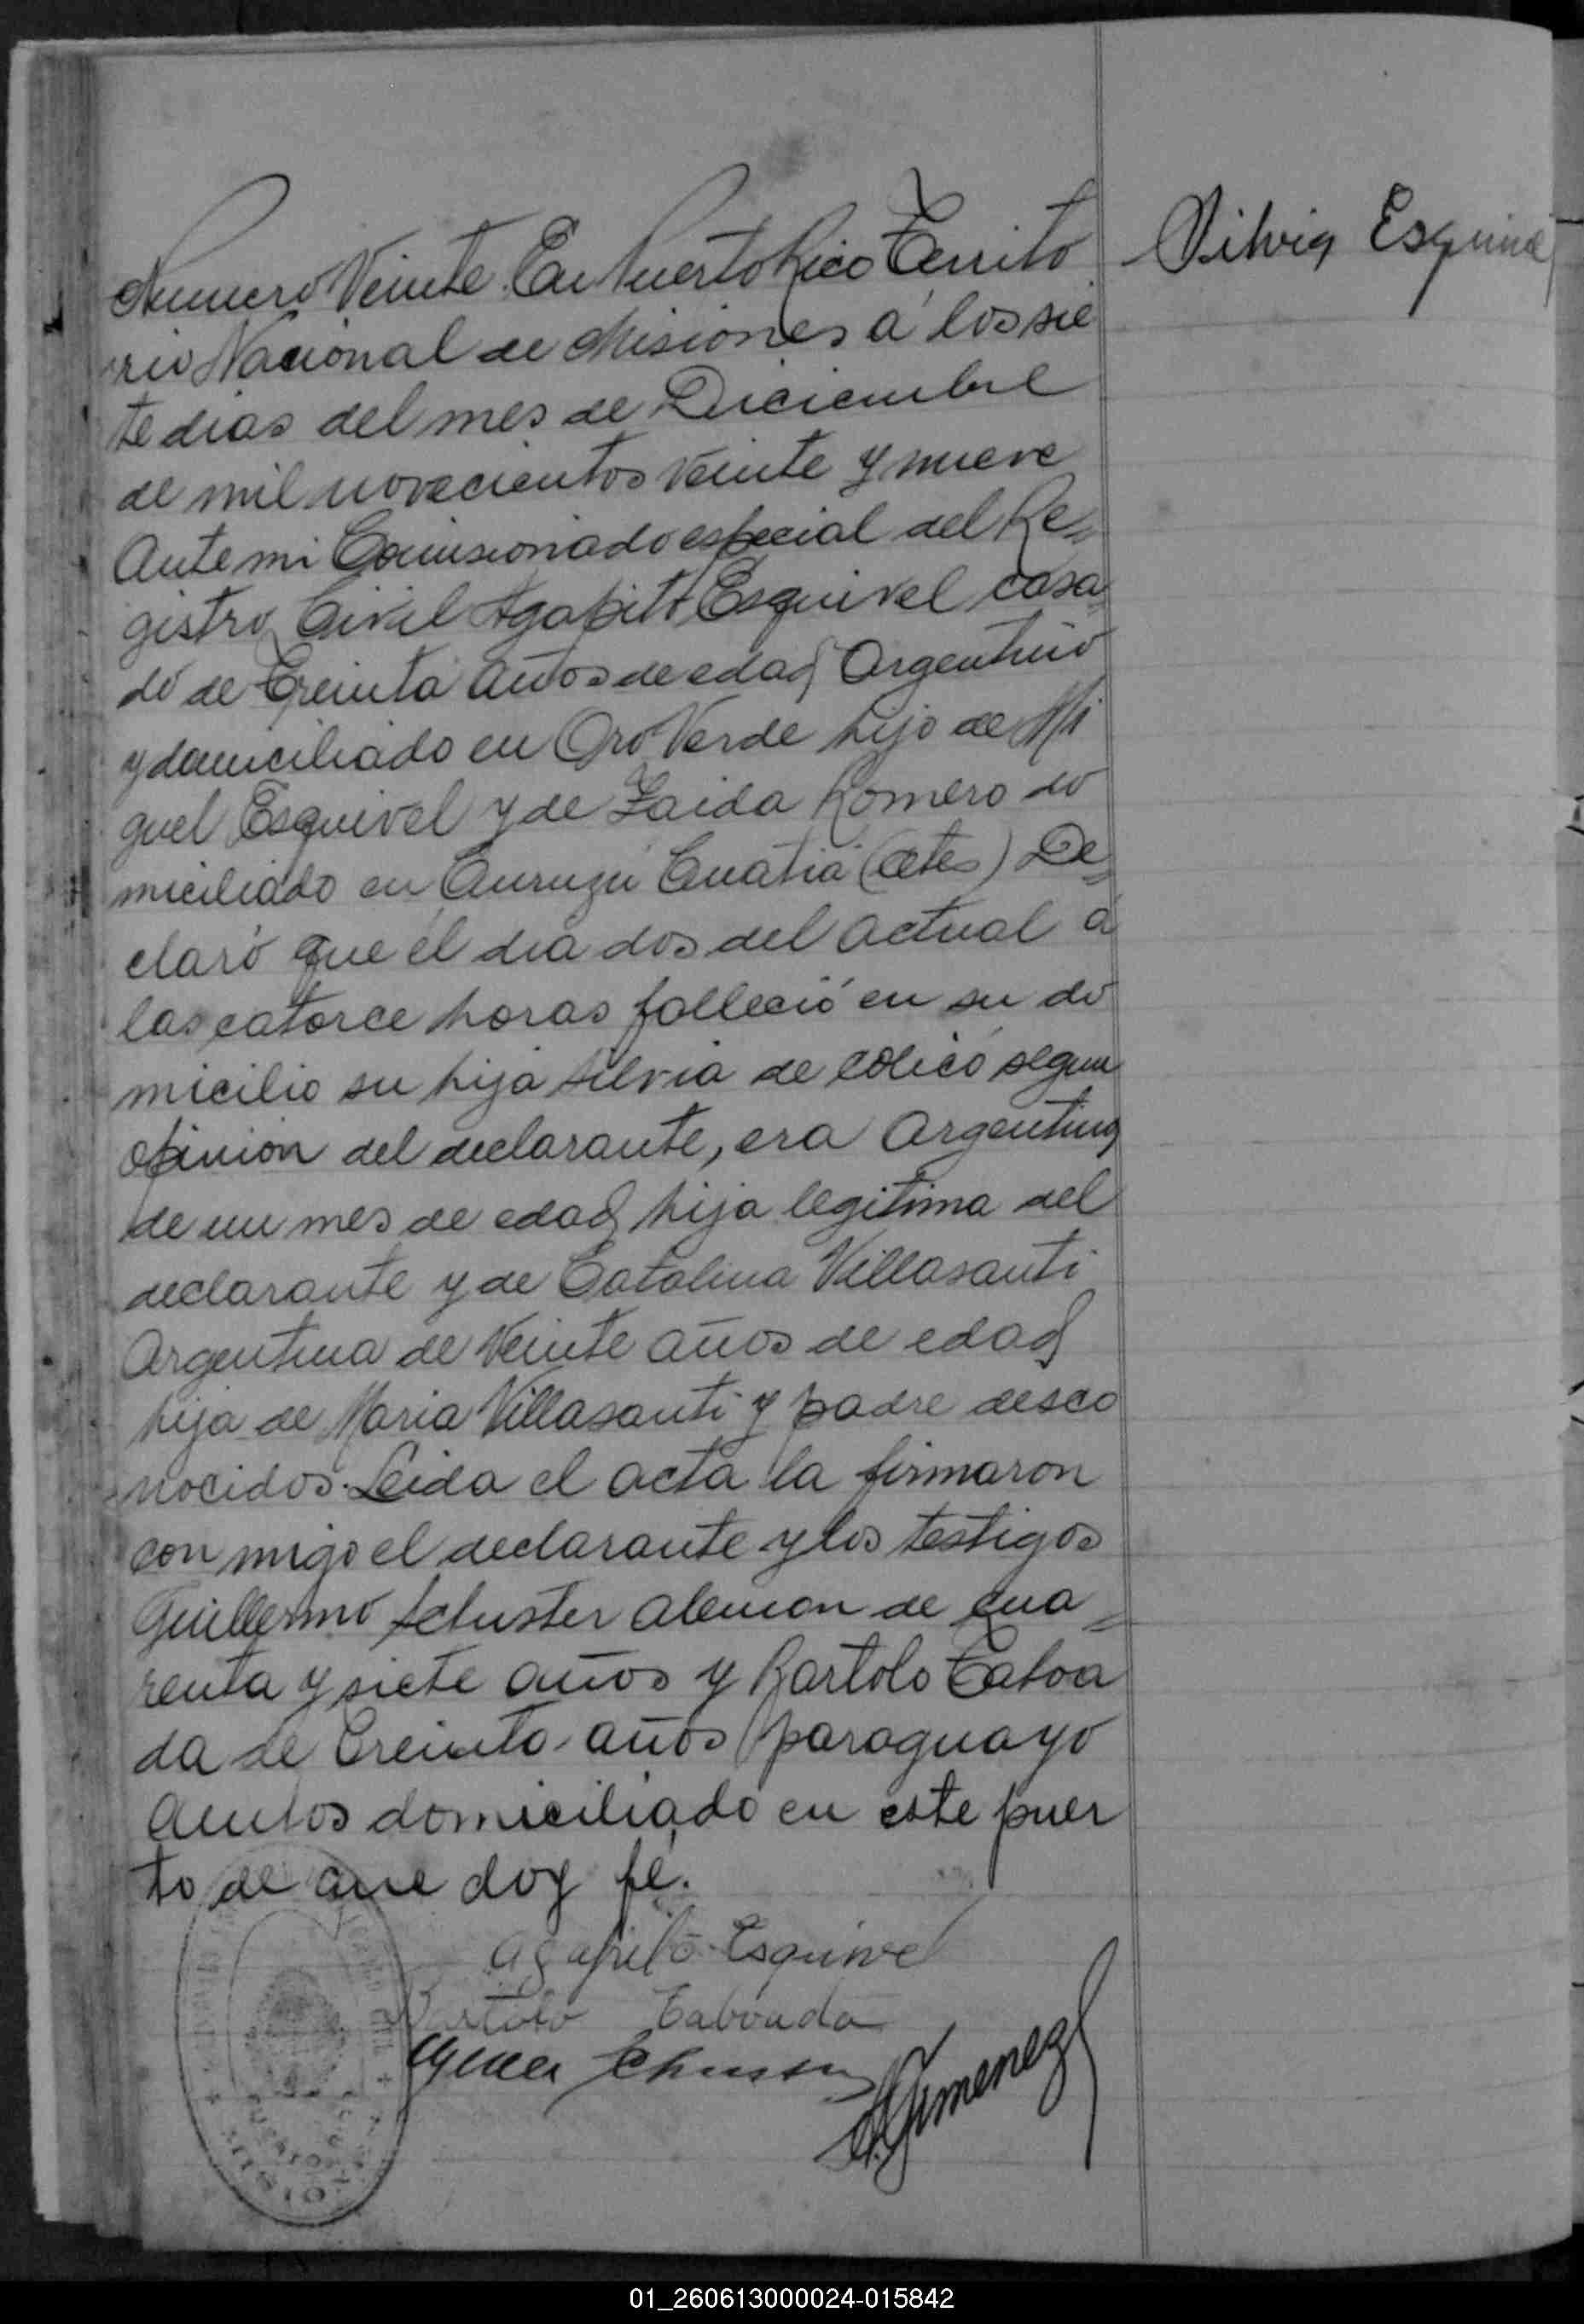 Silvia Esquivel
Numero Veinte. En Puerto Rico Territo
rio Nacional de Misiones á los sie
te dias del mes de Diciembre
de mil novecientos veinte y nueve
Ante mi Comisionado especial del Re=
gistro Civil Agapito Esquivel casa
do de treinta años de edad Argentino
y domiciliado en Oro Verde hijo de Mi
guel Esquivel y de Zaida Romero do
miciliado en Curuzú Cuatiá (Ctes) De=
claró que el dia dos del actual á
las catorce horas falleció en su do
micilio su hija Silvia de cólico segun
opinion del declarante, era Argentina
de un mes de edad hija legitima del
declarante y de Catalina Villasanti
Argentina de veinte años de edad
hija de Maria Villasanti y padre desco
nocidos. Leida el acta la firmaron
con migo el declarante y los testigos
Guillermo Schuster aleman de cua=
renta y siete años y Bartolo Taboa
da de treinta años paraguayo
ambos domiciliado en este puer
to de que doy fé.
Agapito Esquivel
Bartolo Tabouda
Schuster
A. Gimenez
01_260613000024-015842